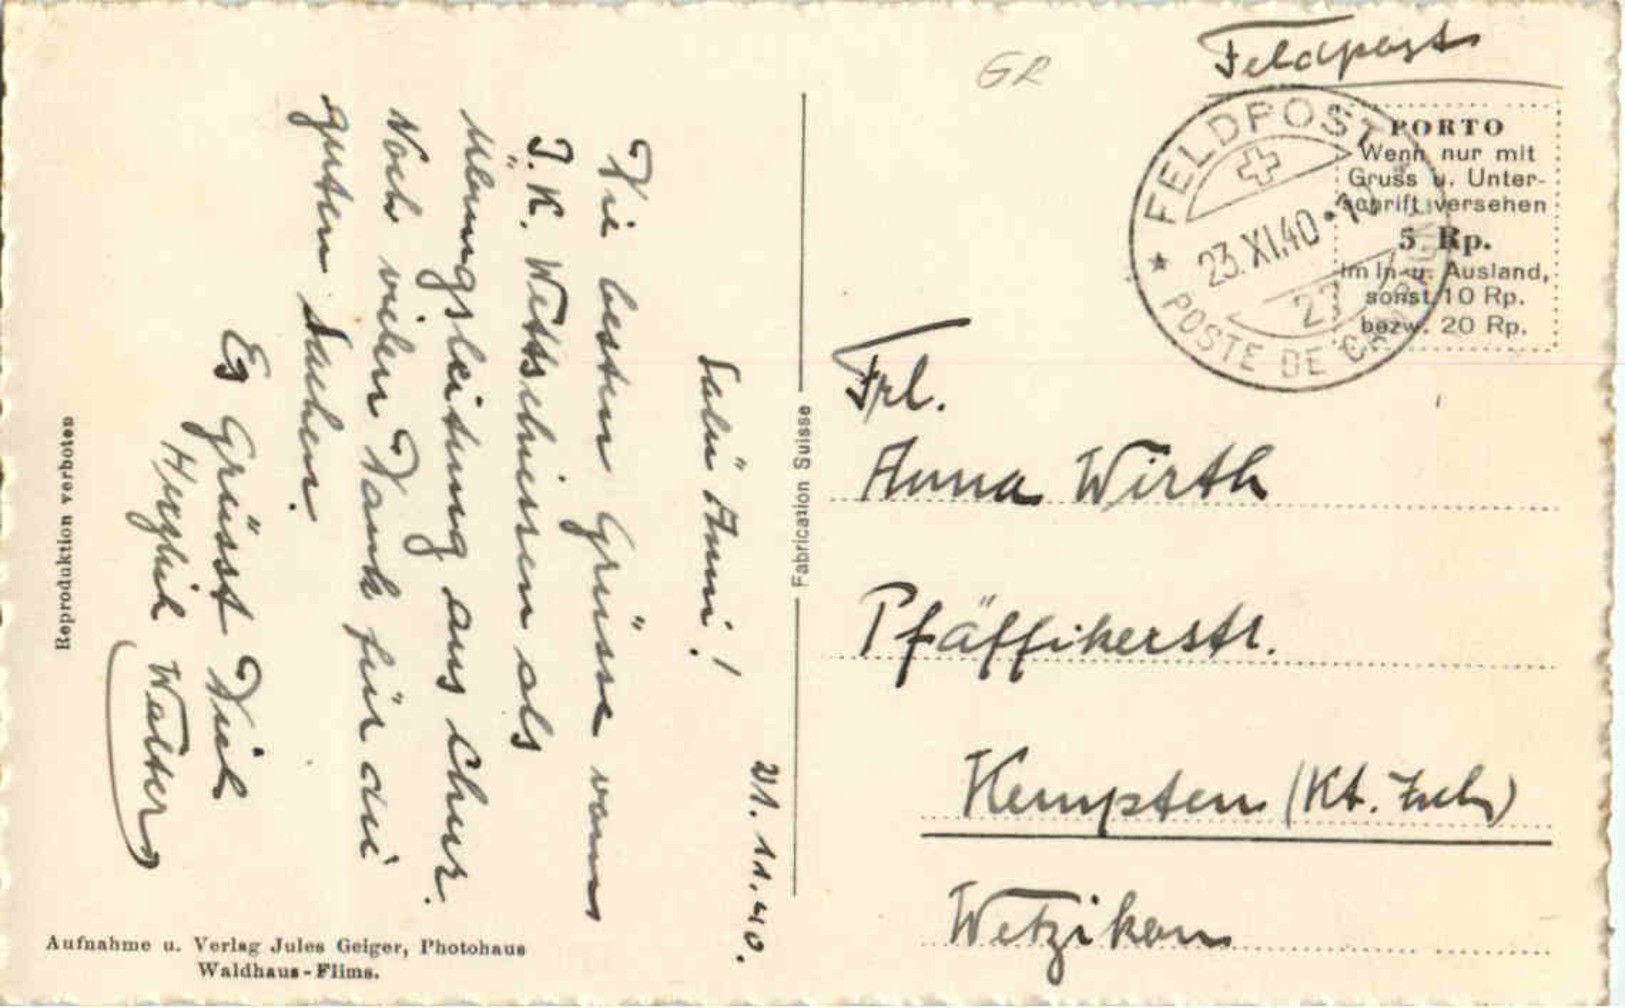 21.11.40.
Salü Anni!
Die besten Grüsse vom
J.K. Wettschiessen als
Uebungsleitung aus Chur.
Noch vielen Dank für die
guten Sachen.
Es Grüsst Dich
Herzlich Walter
Reproduktion verboten
Aufnahme u. Verlag Jules Geiger, Photohaus
Waldhaus-Flims.
Fabrication Suisse
GR
Feldpost
FELDPOST
23.XI.40
POSTE DE
PORTO
Wenn nur mit
Gruss u. Unter-
schrift versehen
5 Rp.
im In- u. Ausland,
sonst 10 Rp.
bezw. 20 Rp.
Frl.
Anna Wirth
Pfäffikerstr.
Kempten (Kt. Zch)
Wetzikon